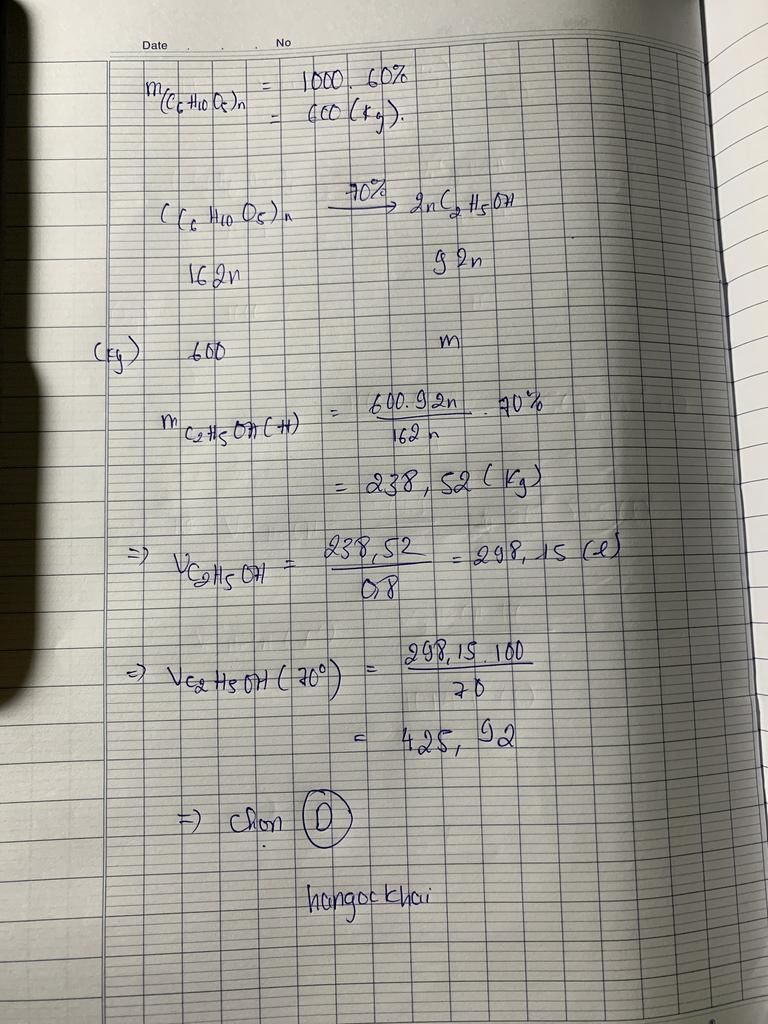 Date . . . No
m(C6H10O5)n = 1000. 60%
= 600 (kg).
(C6H10O5)n 70%→ 2nC2H5OH
162n 92n
(kg) 600 m
mC2H5OH(H) = 600.92n/162n . 70%
= 238,52 (kg)
=> VC2H5OH = 238,52/0,8 = 298,15 (l)
=> VC2H5OH(70°) = 298,15.100/70
= 425,92
=> Chọn D
hangockhai